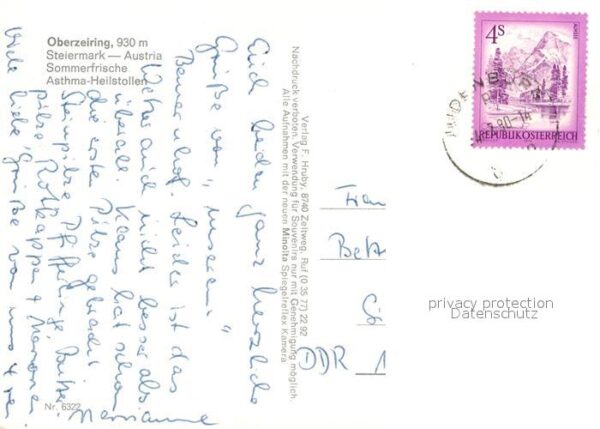 Oberzeiring, 930 m
Steiermark — Austria
Sommerfrische
Asthma-Heilstollen
Euch beiden ganz herzliche
Grüße von "unserem"
Bauernhof. Leider ist das
Wetter auch nicht besser als
überall. Klaus hat schon
die ersten Pilze gebracht
Steinpilze, Pfifferlinge, Butter-
pilze, Rotkappen + Maronen.
Viele liebe Grüße von uns 4
Marianne
Nr. 6322
Verlag F. Hruby, 8740 Zeltweg, Ruf (0 35 77) 22 92
Nachdruck verboten. Verwendung für Souvenirs nur mit Genehmigung möglich.
Alle Aufnahmen mit der neuen Minolta Spiegelreflex Kamera
4S
REPUBLIK ÖSTERREICH
90-14
DDR
privacy protection
Datenschutz